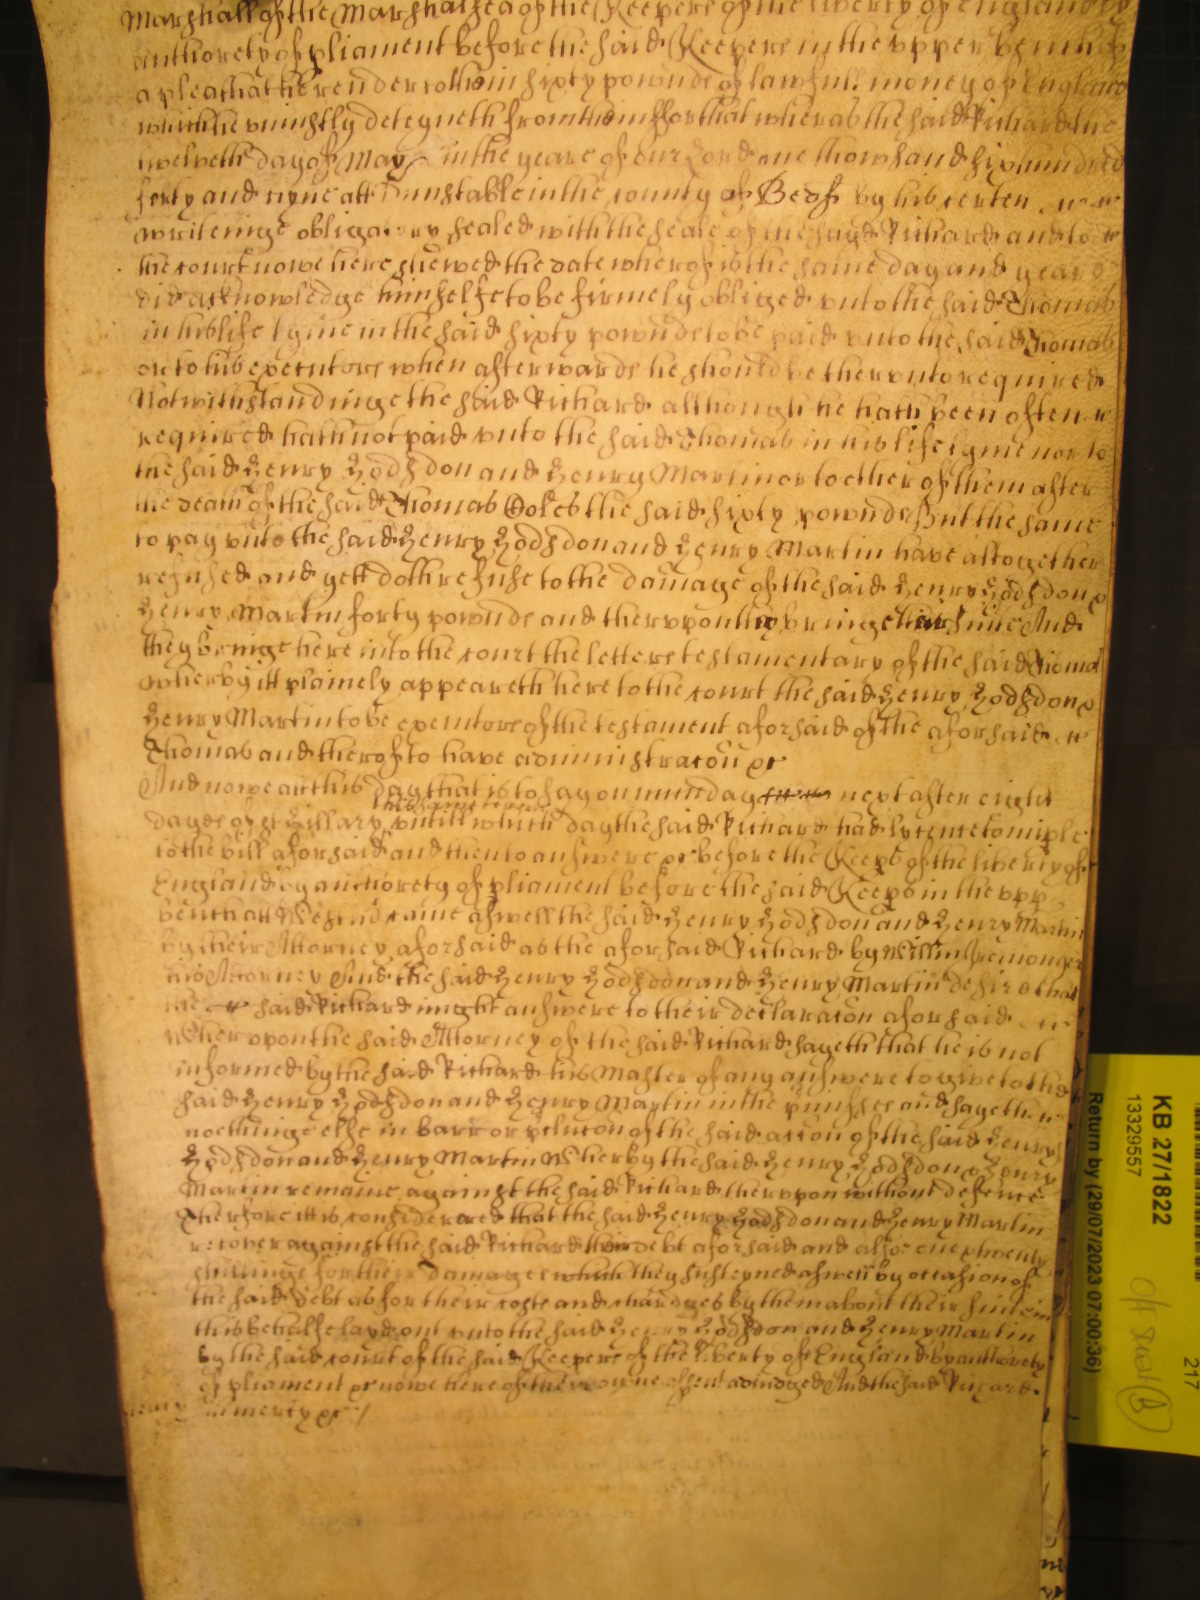 Marshall of the Marshalsea of the Keepers of the liberty of England by
authorety of pliament before the said Keepers in the upper bench of
a plea that he render to them sixty pownds of lawfull money of England
which he uniustly deteyneth from them ffor that wheras the said Richard the
twelveth day of May in the yeare of our Lord one thowsand six hundred
forty and nyne att Dunstable in the county of Bedf by his certen
writeinge obligatory sealed with the seale of the sayd Richard and to
the court nowe here shewed the date wherof is the same day and yeare
did acknowledge himselfe to be firmely obliged unto the said Thomas
in his life tyme in the said sixty pownds to be paid unto the said Thomas
or to his executors when afterwards he should be therunto required
Notwithstandinge the said Richard although he hath been often
required hath not paid unto the said Thomas in his life tyme nor to
the said Henry Hodsdon and Henry Martin or to ether of them after
the death of the said Thomas Coles the said sixty pownds But the same
to pay unto the said Henry Hodsdon and Henry Martin have altogether
refused and yett doth refuse to the damage of the said Henry Hodsdon &
Henry Martin forty pownds and therupon they bringe their suite And
they bringe here into the court the letters testamentary of the said Thomas
wherby itt plainely appeareth here to the court the said Henry Hodsdon &
Henry Martin to be executors of the testament aforsaid of the aforsaid
Thomas and therof to have administracon &c
And nowe att this day that is to say on munday next after eight
the same terme
dayes of St Hillary untill which day the said Richard had lycence to imple
to the bill aforsaid and then to answere &c before the Keeps of the liberty of
England by authorety of pliament before the said Keeps in the upp
bench att Westm came aswell the said Henry Hodsdon and Henry Martin
by their Attorney aforsaid as the aforsaid Richard by Willm Iremonger
his Attorney And the said Henry Hodsdon and Henry Martin desire that
the said Richard might answere to their declaracon aforsaid
Wherupon the said Attorney of the said Richard sayeth that he is not
informed by the said Richard his Master of any answere to give to the
said Henry Hodsdon and Henry Martin in the pmisses and sayeth
noethinge else in barr or pclucon of the said accon of the said Henry
Hodsdon and Henry Martin Wherby the said Henry Hodsdon & Henry
Martin remaine against the said Richard therupon without defence
Therfore itt is considered that the said Henry Hodsdon and Henry Martin
recover against the said Richard their debt aforsaid and alsoe one & twenty
shillings for their damages which they susteyned aswell by occasion of
the said debt as for their costs and chardges by them about their suite in
this behalfe layd out unto the said Henry Hodsdon and Henry Martin
by the said court of the said Keepers of the liberty of England by authorety
of pliament &c nowe here of their owne assent adiudged And the said Richard
mercy in mercy &c /
KB 27/1822
13329557
Return by (29/07/2023 07:00:36)
217